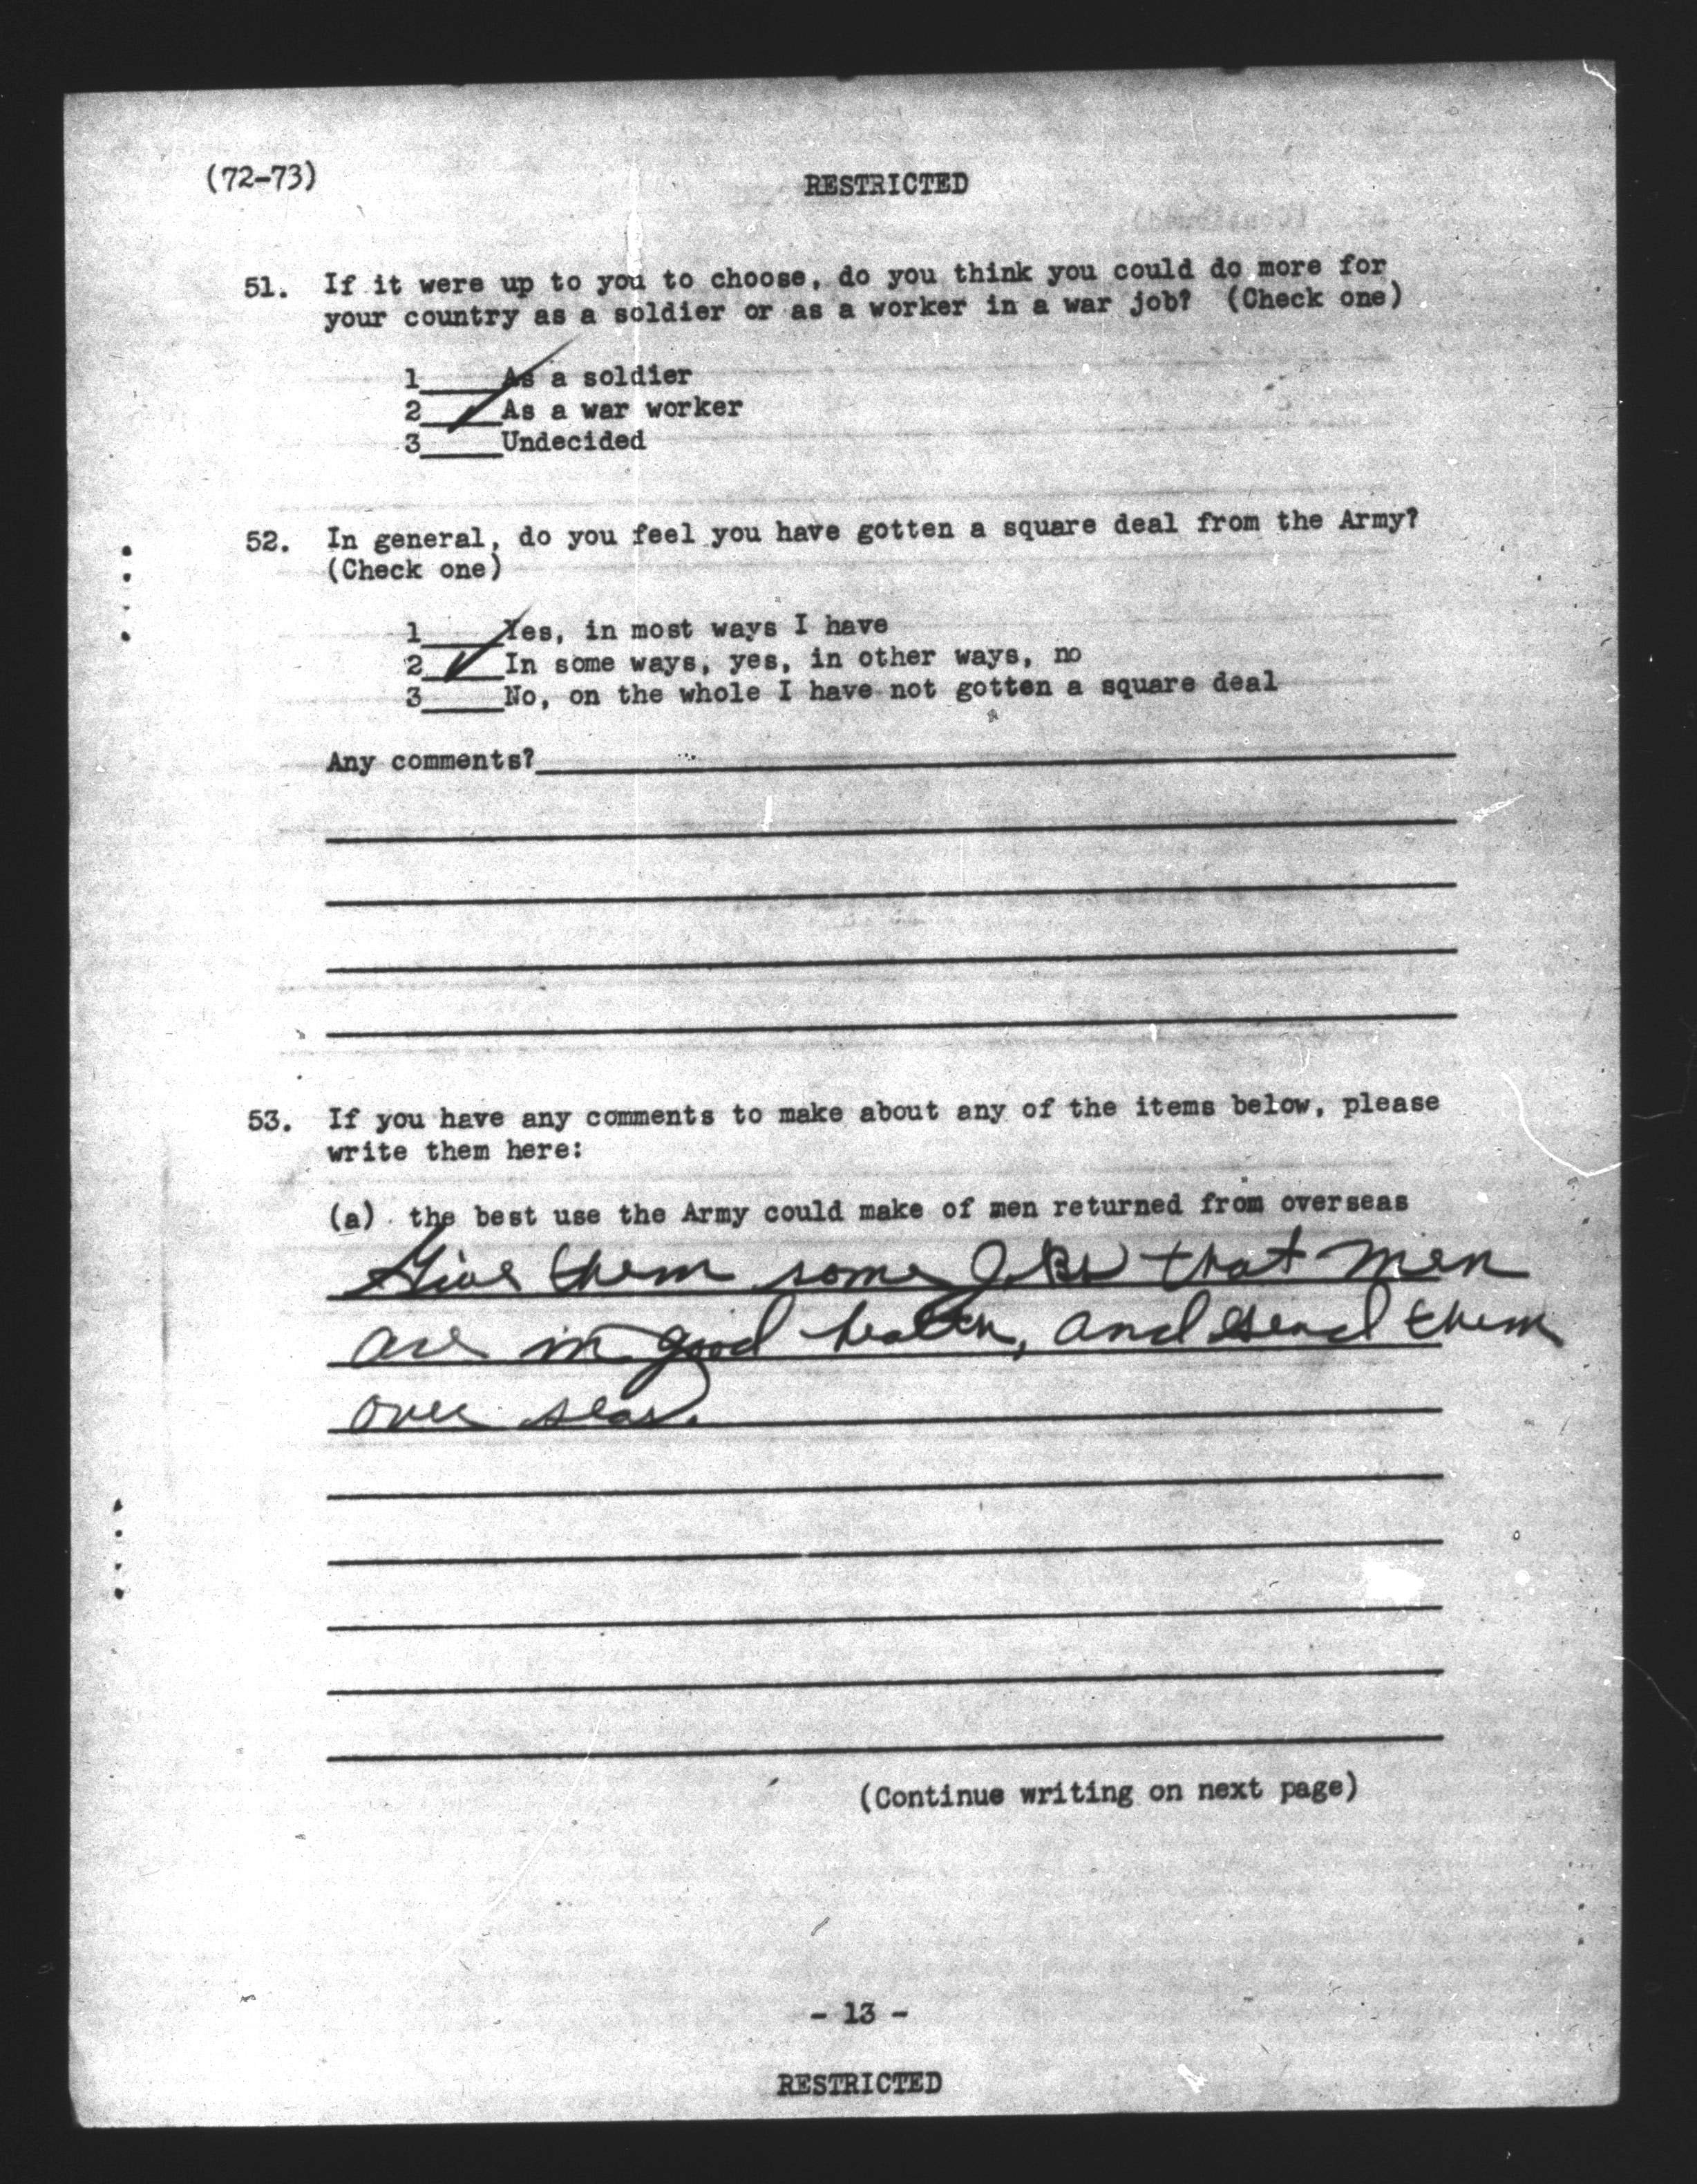 (72-73)
RESTRICTED
51. If it were up to you to choose, do you think you could do more for
your country as a soldier or as a worker in a war job? (Check one)
1____As a soldier
2__✓__As a war worker
3____Undecided
52. In general, do you feel you have gotten a square deal from the Army?
(Check one)
1____Yes, in most ways I have
2__✓__In some ways, yes, in other ways, no
3____No, on the whole I have not gotten a square deal
Any comments?
53. If you have any comments to make about any of the items below, please
write them here:
(a) the best use the Army could make of men returned from overseas
Give them some Jobs that men
are in good health, and send them
over seas.
(Continue writing on next page)
- 13 -
RESTRICTED